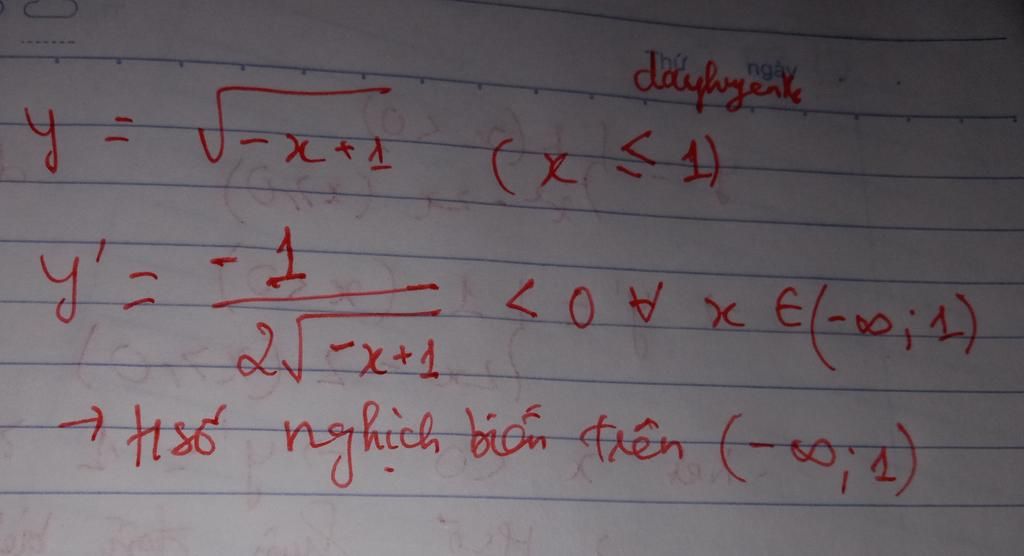 Thứ ngày
dayhuyenk
y = √(-x+1) (x ≤ 1)
y' = -1/(2√(-x+1)) < 0 ∀ x ∈ (-∞; 1)
→ Hsố nghịch biến trên (-∞; 1)